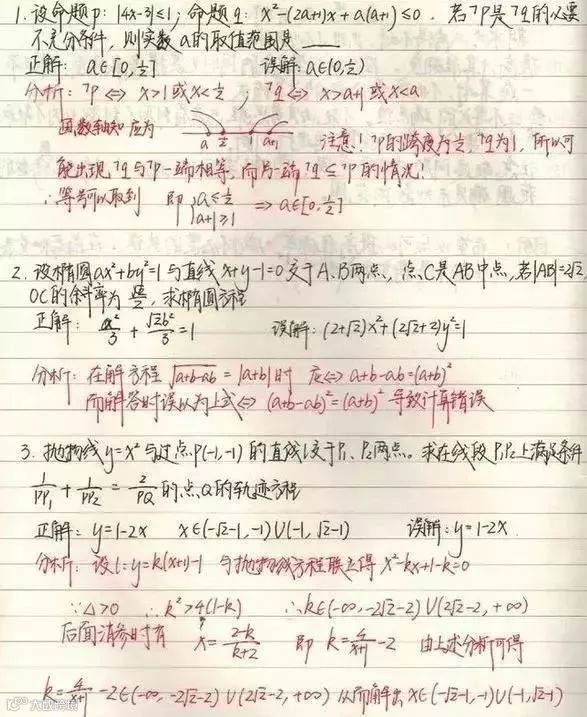 1. 设命题p: |4x-3|≤1; 命题q: x²-(2a+1)x+a(a+1)≤0. 若¬p是¬q的必要
不充分条件, 则实数a的取值范围是 ____
正解: a∈[0, 1/2] 误解: a∈(0, 1/2)
分析: ¬p ⇔ x>1或x<1/2 ; ¬q ⇔ x>a+1 或x<a
由数轴知 应为 a 1/2 1 a+1 注意! ¬p的跨度为1/2, ¬q为1, 所以可
能出现¬q与¬p一端相等, 而另一端¬q≤¬p的情况!
∴等号可以取到 即 { a≤1/2 a+1≥1 ⇒ a∈[0, 1/2]
2. 设椭圆ax²+by²=1与直线x+y-1=0交于A、B两点, 点C是AB中点, 若|AB|=2√2,
OC的斜率为 √2/2, 求椭圆方程
正解: x²/3 + √2y²/3 = 1 误解: (2+√2)x²+(2√2+2)y²=1
分析: 在解方程 √a+b-ab = |a+b| 时 应⇔ a+b-ab=(a+b)²
而解答时误以为上式⇔ (a+b-ab)²=(a+b)² 导致计算错误
3. 抛物线y=x²与过点P(-1,-1)的直线l交于P₁、P₂两点。求在线段P₁P₂上满足条件
1/PP₁ + 1/PP₂ = 2/PQ 的点Q的轨迹方程
正解: y=1-2x x∈(-√2-1, -1)∪(-1, √2-1) 误解: y=1-2x
分析: 设l: y=k(x+1)-1 与抛物线方程联立得 x²-kx+1-k=0
∵Δ>0 ∴k²>4(1-k) ∴k∈(-∞, -2√2-2)∪(2√2-2, +∞)
后面消参时有 x=2-k/k+2 即 k=4/x+1 -2 由上述分析可得
k=4/x+1 -2∈(-∞, -2√2-2)∪(2√2-2, +∞) 从而解出x∈(-√2-1, -1)∪(-1, √2-1)